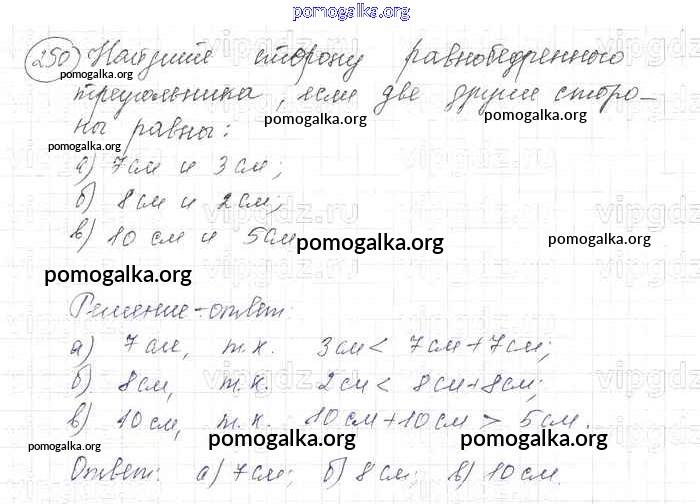 pomogalka.org
250) Найдите сторону равнобедренного
pomogalka.org
треугольника, если две другие сторо-
pomogalka.org
pomogalka.org
ны равны:
pomogalka.org
а) 7 см и 3 см;
б) 8 см и 2 см;
vipgdz.ru
в) 10 см и 5 см
pomogalka.org
pomogalka.org
pomogalka.org
Решение-ответ:
а) 7 см, т.к. 3 см < 7 см + 7 см;
б) 8 см, т.к. 2 см < 8 см + 8 см;
vipgdz.ru
в) 10 см, т.к. 10 см + 10 см > 5 см.
pomogalka.org
pomogalka.org
pomogalka.org
Ответ: а) 7 см; б) 8 см; в) 10 см.